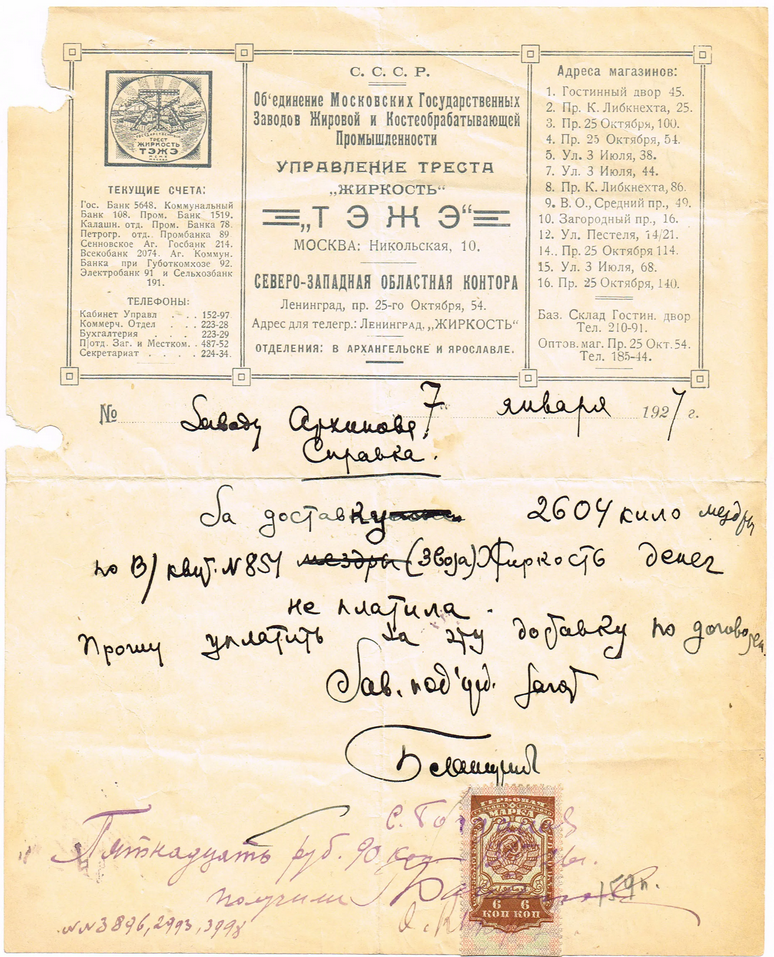 ГОСУДАРСТВЕННЫЙ
ТРЕСТ
ЖИРКОСТЬ
ТЭЖЭ
ТЕКУЩИЕ СЧЕТА:
Гос. Банк 5648. Коммунальный
Банк 108. Пром. Банк 1519.
Калашн. отд. Пром. Банка 78.
Петрогр. отд. Промбанка 89
Сенновское Аг. Госбанк 214.
Всекобанк 2074. Аг. Коммун.
Банка при Губоткомхозе 92.
Электробанк 91 и Сельхозбанк
191.
ТЕЛЕФОНЫ:
Кабинет Управл . . . 152-97
Коммерч. Отдел . . . 223-28
Бухгалтерия . . . 223-29
Потд. Заг. и Местком. . 487-52
Секретариат . . . . 224-34.
С. С. С. Р.
Об'единение Московских Государственных
Заводов Жировой и Костеобрабатывающей
Промышленности
УПРАВЛЕНИЕ ТРЕСТА
„ЖИРКОСТЬ“
„ТЭЖЭ“
МОСКВА: Никольская, 10.
СЕВЕРО-ЗАПАДНАЯ ОБЛАСТНАЯ КОНТОРА
Ленинград, пр. 25-го Октября, 54.
Адрес для телегр.: Ленинград, „ЖИРКОСТЬ“
ОТДЕЛЕНИЯ: В АРХАНГЕЛЬСКЕ И ЯРОСЛАВЛЕ.
Адреса магазинов:
1. Гостинный двор 45.
2. Пр. К. Либкнехта, 25.
3. Пр. 25 Октября, 100.
4. Пр. 25 Октября, 54.
5. Ул. 3 Июля, 38.
7. Ул. 3 Июля, 44.
8. Пр. К. Либкнехта, 86.
9. В. О., Средний пр., 49.
10. Загородный пр., 16.
12. Ул. Пестеля, 14/21.
14. Пр. 25 Октября 114.
15. Ул. 3 Июля, 68.
16. Пр. 25 Октября, 140.
Баз. Склад Гостин. двор
Тел. 210-91.
Оптов. маг. Пр. 25 Окт. 54.
Тел. 185-44.
№ 7 января 1927 г.
Заводу Архипова
Справка.
За доставку 2604 кило мездры
по В/ квит. N 851 мездры (Звоза) Жиркость денег
не платила.
Прошу уплатить за эту доставку по договорен.
Зав. под'уд.
ГЕРБОВАЯ
МАРКА
6 6
КОП КОП
Пятнадцать руб. 90 коп
получили
159п.
NN 3896, 2993, 3998